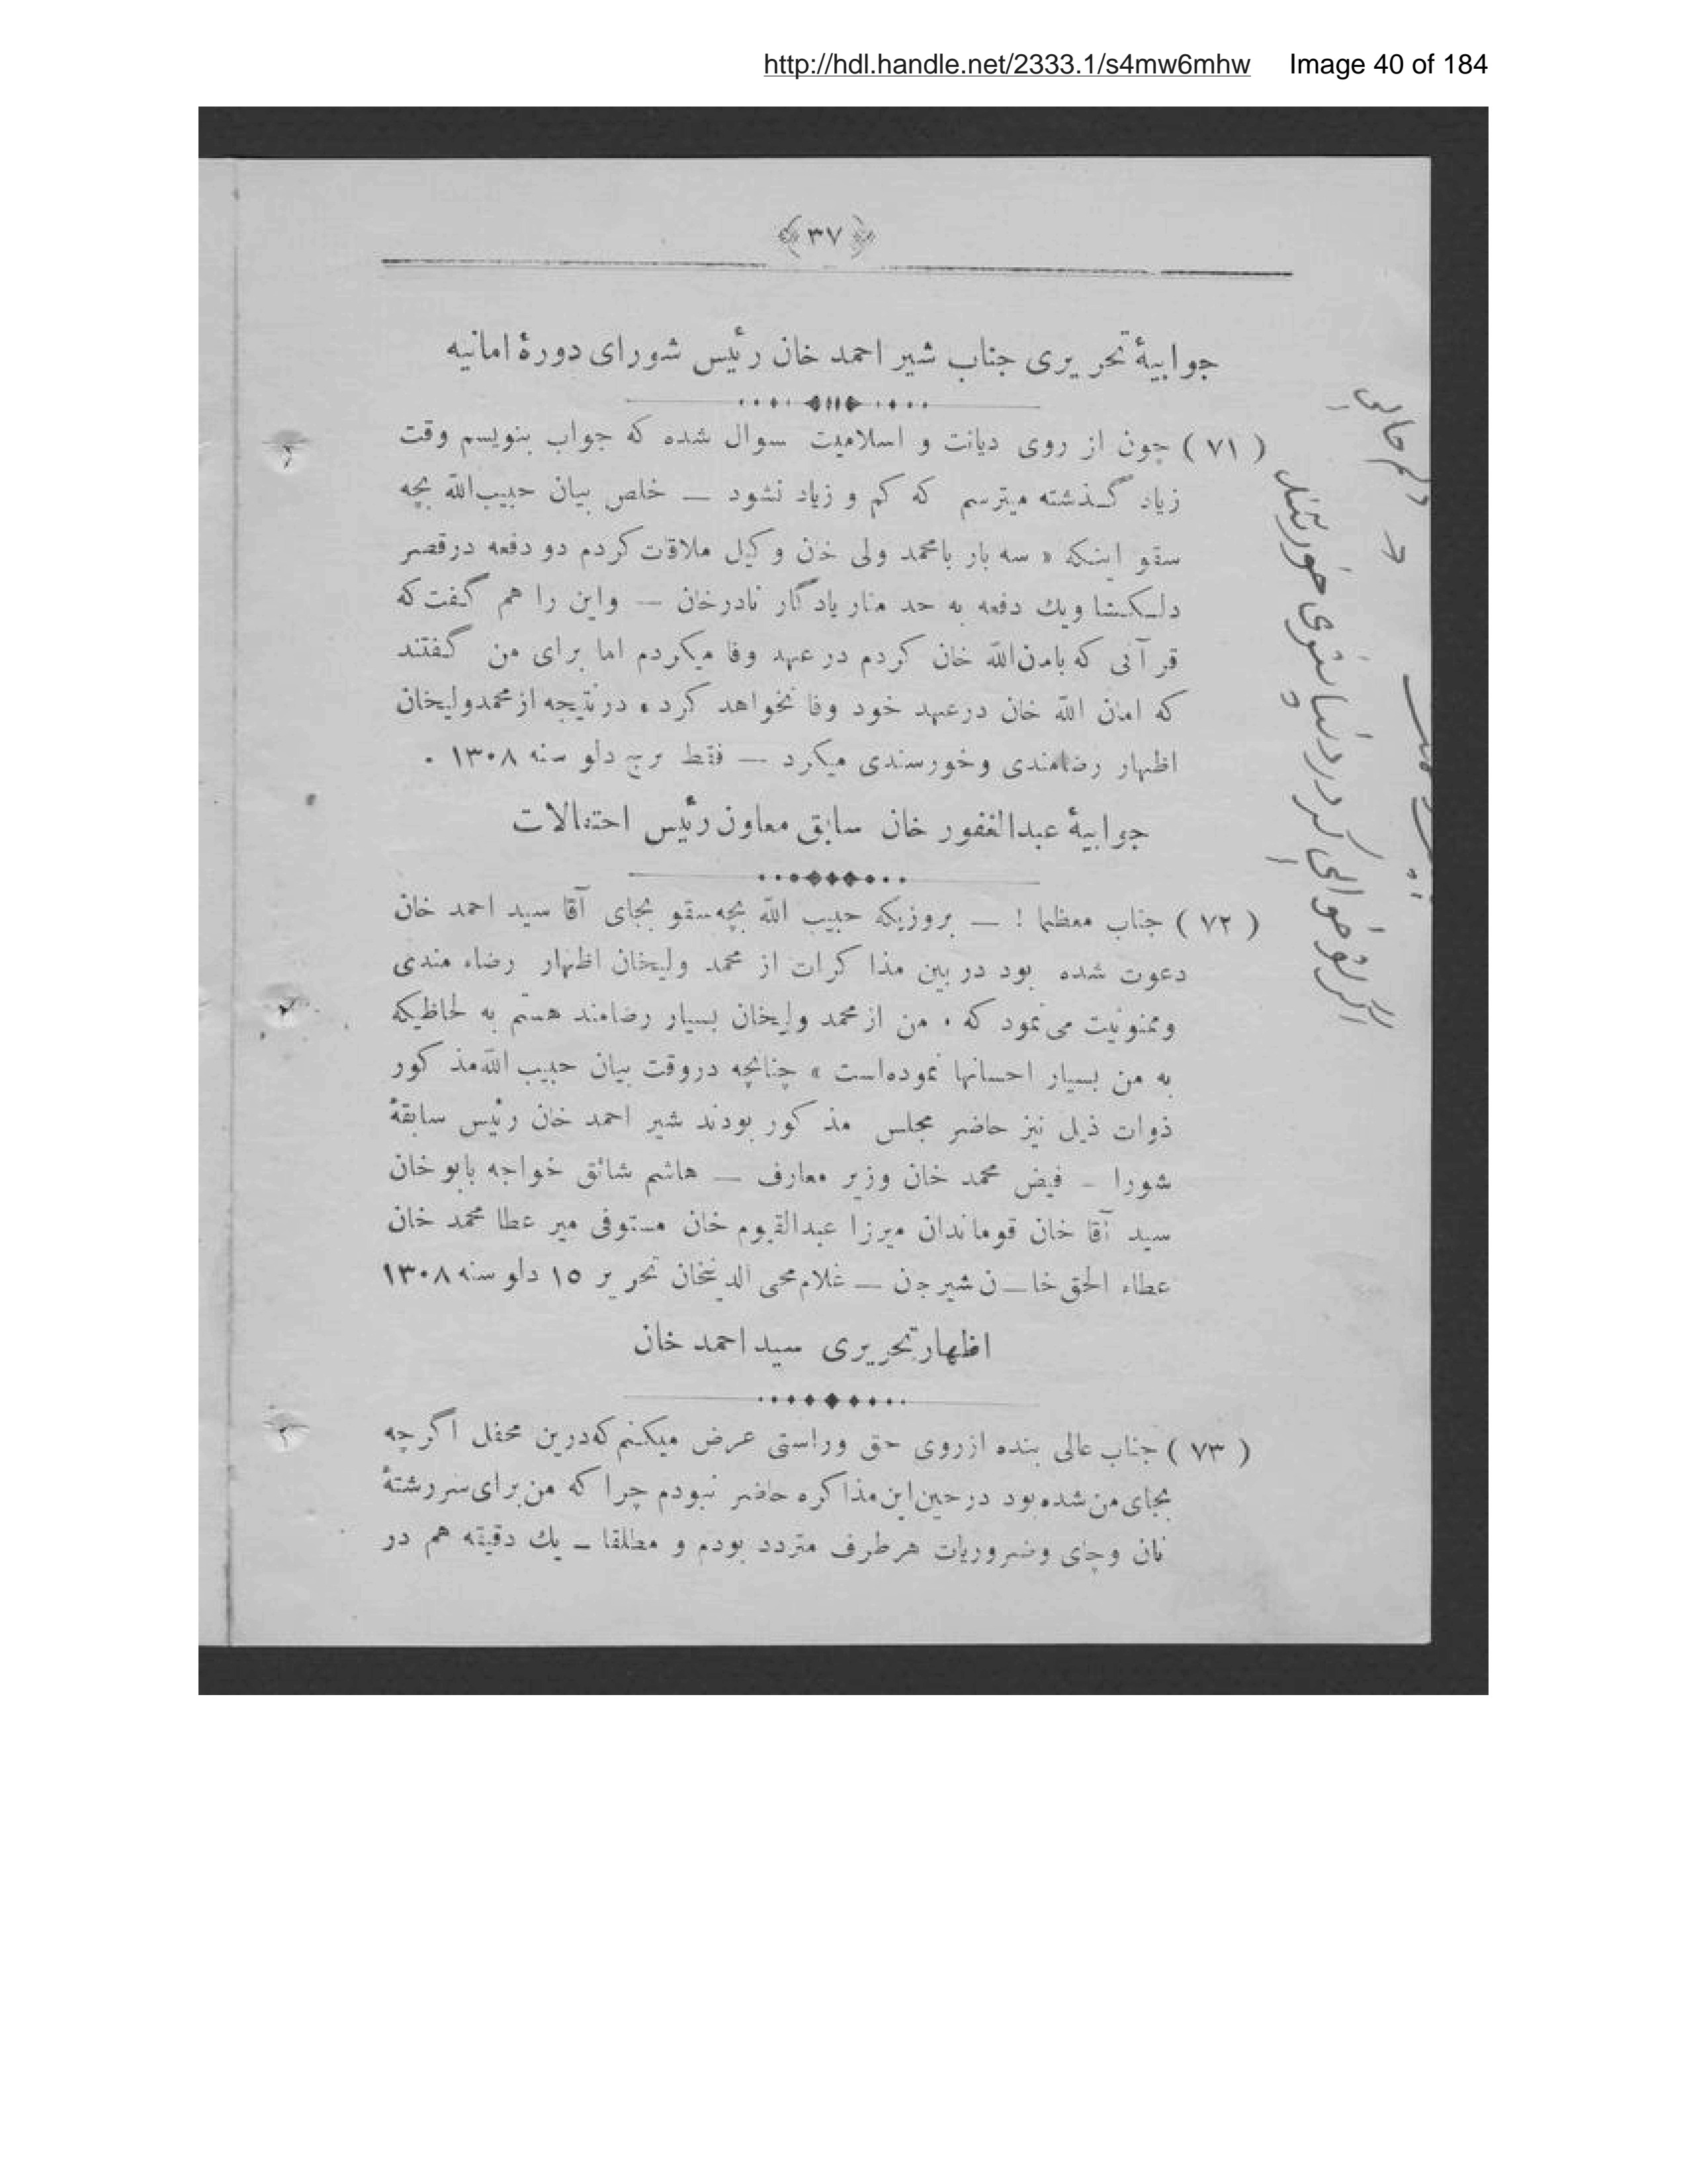 http://hdl.handle.net/2333.1/s4mw6mhw Image 40 of 184
﴿ ٣٧ ﴾
جوابیهٔ تحریری جناب شیر احمد خان رئیس شورای دورهٔ امانیه
( ٧١ ) چون از روی دیانت و اسلامیت سوال شده که جواب بنویسم وقت
زیاد گذشته میترسم که کم و زیاد نشود — خلص بیان حبیب‌الله بچه
سقو اینکه « سه بار بامحمد ولی خان وکیل ملاقات کردم دو دفعه درقصر
دلکشا ویك دفعه به حد منار یادگار نادرخان — واین را هم گفت که
قرآنی که بامان‌الله خان کردم در عهد وفا میکردم اما برای من گفتند
که امان الله خان درعهد خود وفا نخواهد کرد، درنتیجه از محمدولیخان
اظهار رضامندی وخورسندی میکرد — فقط برج دلو سنه ١٣٠٨ .
جوابیهٔ عبدالغفور خان سابق معاون رئیس احتفالات
( ٧٢ ) جناب معظما ! — بروزیکه حبیب الله بچه سقو بجای آقا سید احمد خان
دعوت شده بود در بین مذاکرات از محمد ولیخان اظهار رضاء مندی
وممنونیت می نمود که ، من از محمد ولیخان بسیار رضامند هستم به لحاظیکه
به من بسیار احسانها نموده‌است » چنانچه دروقت بیان حبیب الله مذکور
ذوات ذیل نیز حاضر مجلس مذکور بودند شیر احمد خان رئیس سابقهٔ
شورا — فیض محمد خان وزیر معارف — هاشم شائق خواجه بابو خان
سید آقا خان قوماندان میرزا عبدالقیوم خان مستوفی میر عطا محمد خان
عطاء الحق خان شیرجان — غلام محی الدینخان تحریر ١٥ دلو سنه ١٣٠٨
اظهار تحریری سید احمد خان
( ٧٣ ) جناب عالی بنده ازروی حق وراستی عرض میکنم که درین محفل اگرچه
بجای من شده بود درحین این مذاکره حاضر نبودم چرا که من برای سررشتهٔ
نان وچای وضروریات هرطرف متردد بودم و مطلقا — یك دقیقه هم در